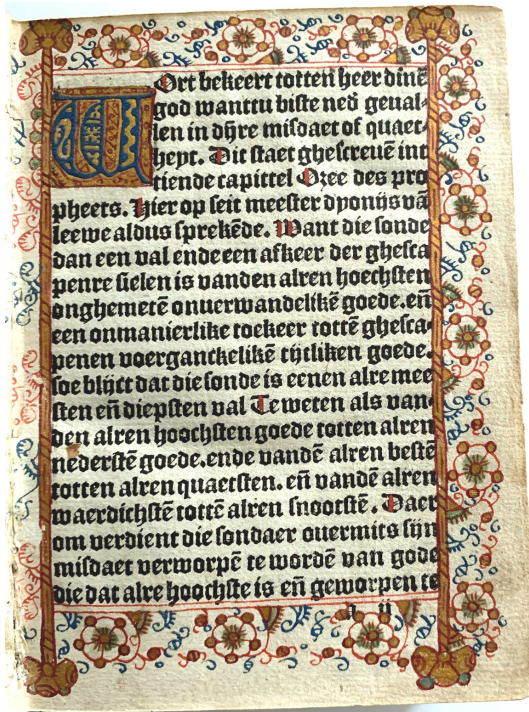 WOrt bekeert totten heer dinē
god wanttu biste ned̄ geual-
len in dyre misdaet of quaet-
heyt. Dit staet ghescreuē int
tiende capittel Ozee des pro
pheets. Hier op seit meester dyonijs vā
leewe aldus sprekēde. Want die sonde
dan een val ende een afkeer der ghesca
penre sielen is vanden alren hoechsten
onghemetē onuerwandelikē goede. en
een onmanierlike toekeer tottē ghesca-
penen voerganckelikē tijtliken goede.
soe blijct dat die sonde is eenen alre mee
sten eñ diepsten val Te weten als van-
den alren hoochsten goede totten alren
nederstē goede. ende vandē alren bestē
totten alren quaetsten. eñ vandē alren
waerdichstē tottē alren snootstē. Daer
om verdient die sondaer ouermits sijn
misdaet verworpē te wordē van gode
die dat alre hoochste is eñ geworpen te
ij